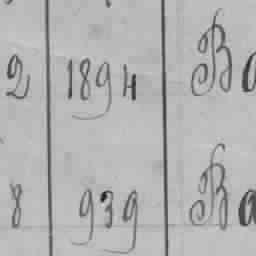 2 1894 Ba
8 939 Ba